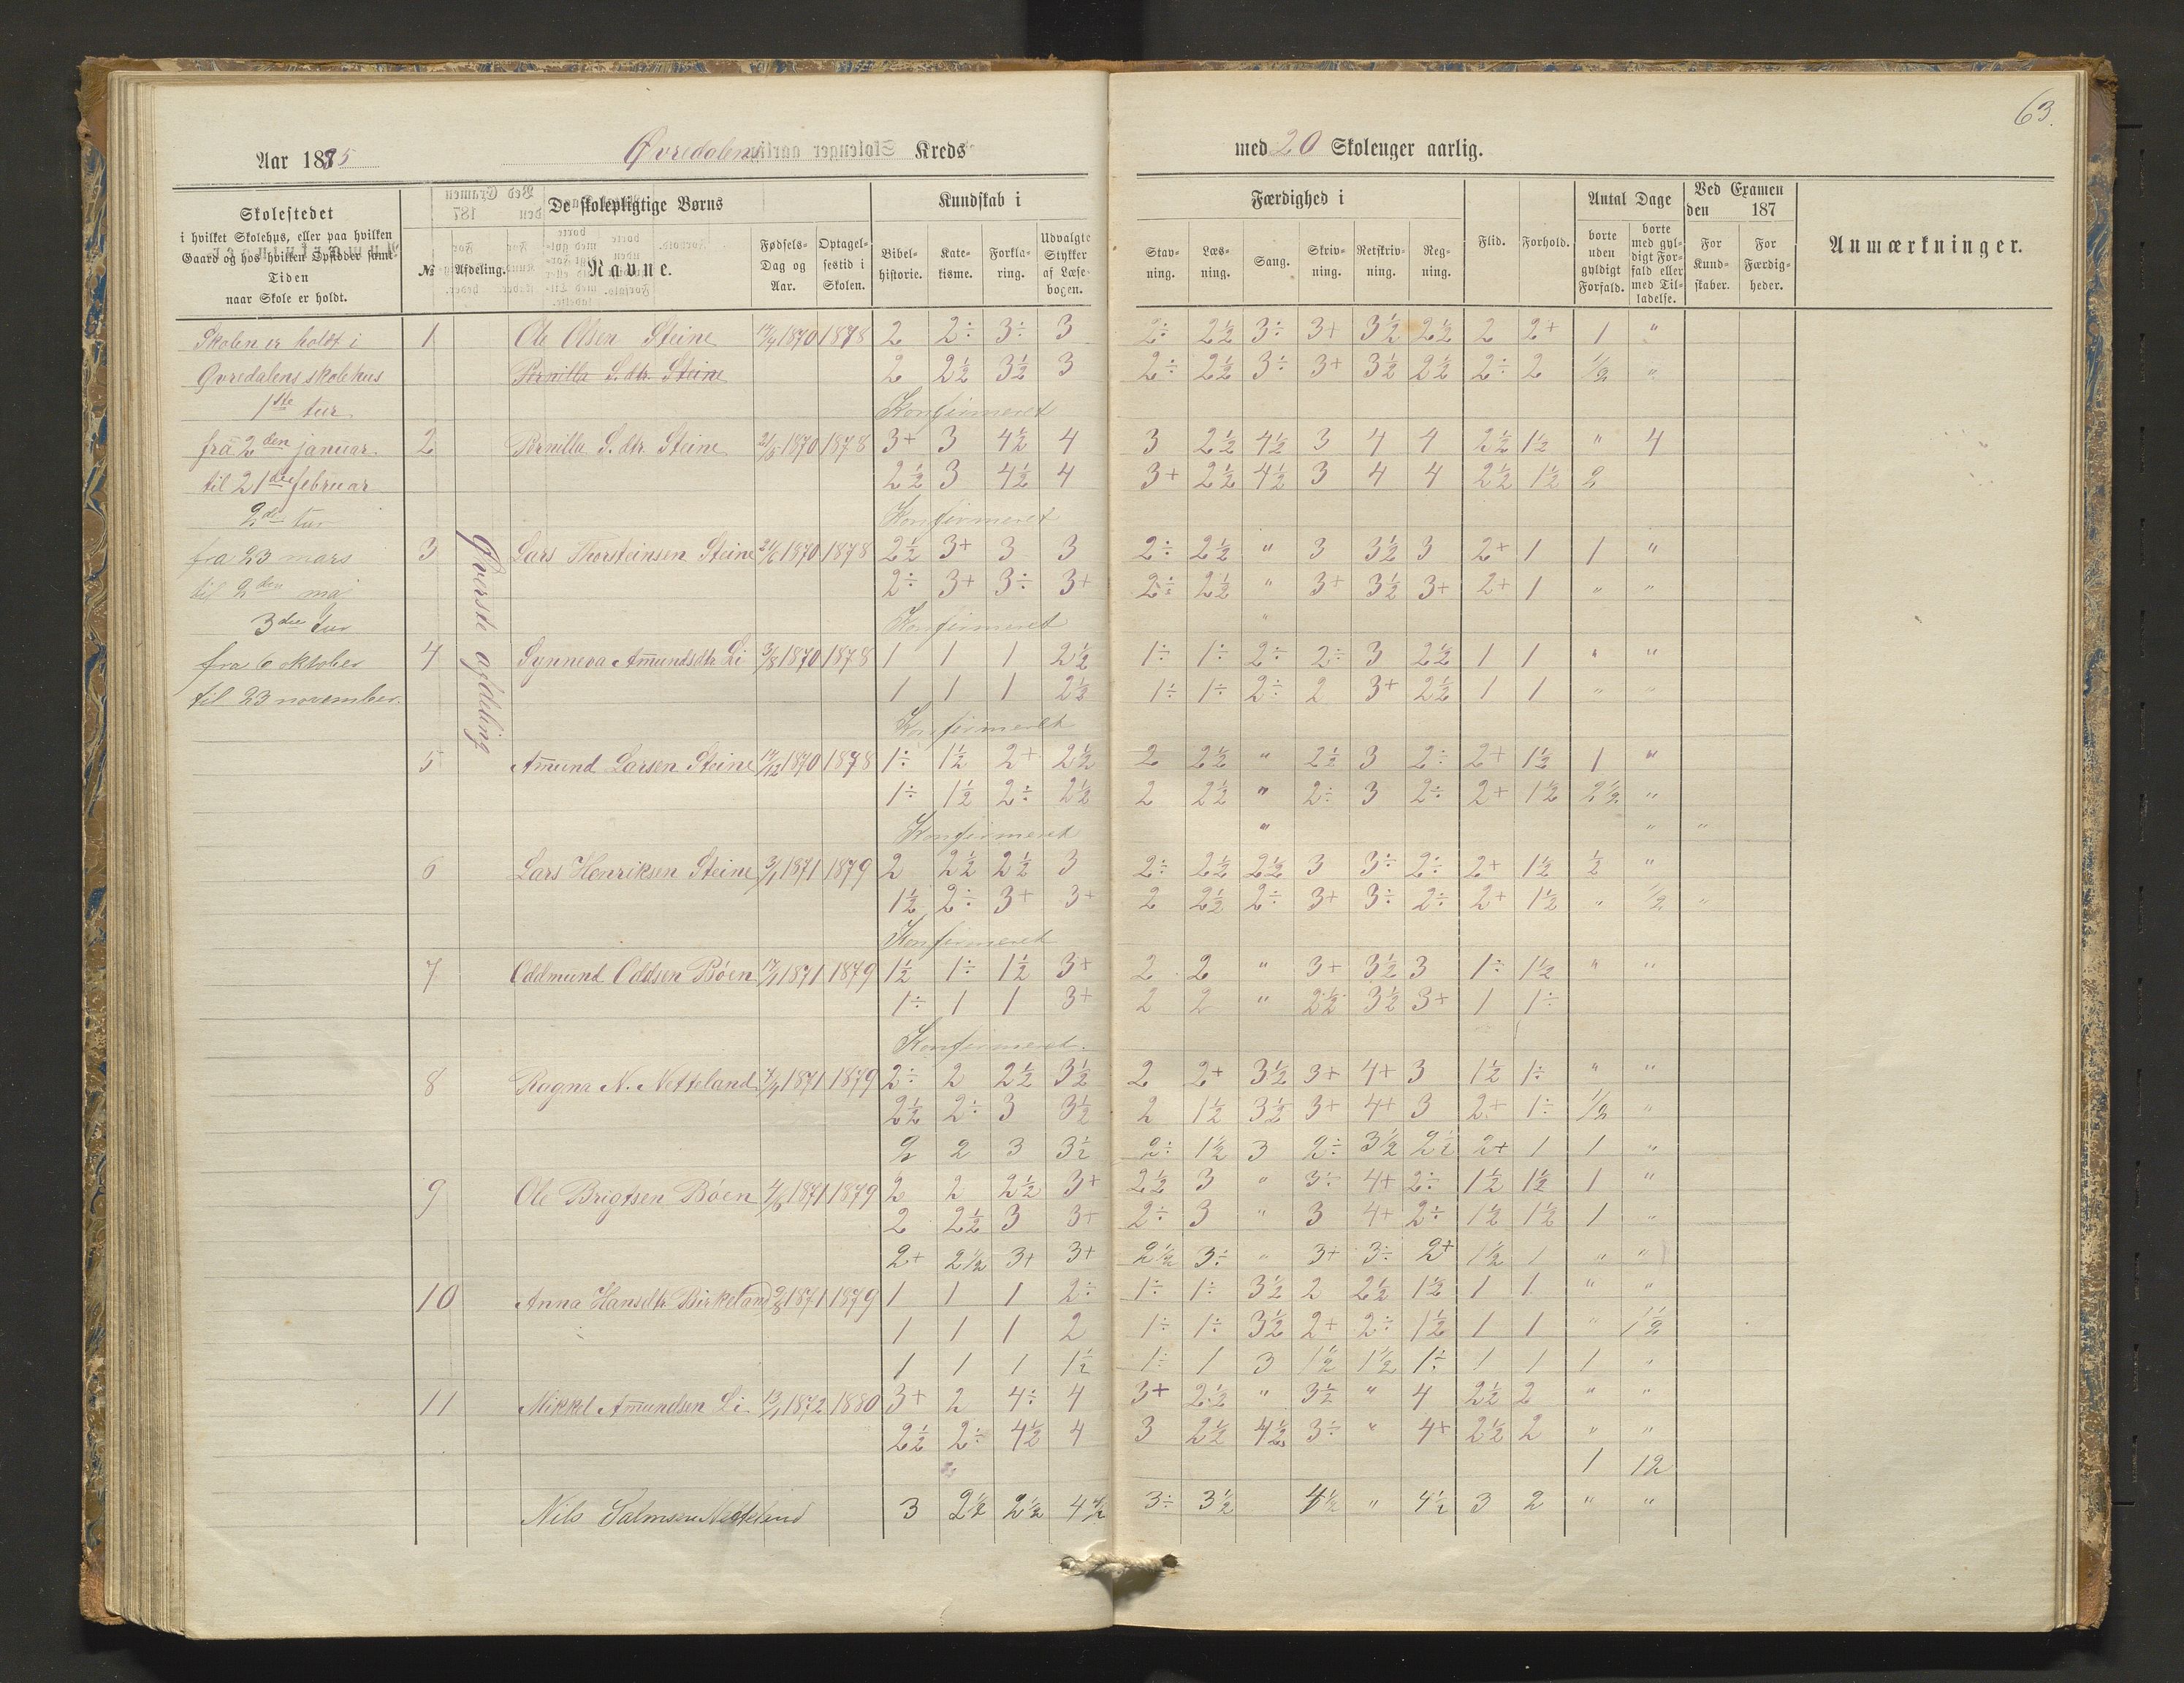 63.
Aar 1885 Øvredalens Kreds med 20 Skoleuger aarlig.
Skolestedet
i hvilket Skolehus, eller paa hvilken
Gaard og hos hvilken Opsidder samt
Tiden
naar Skole er holdt.
De skolepligtige Børns
№ Afdeling. Navne. Fødsels-Dag og Aar. Optagelsestid i Skolen.
Kundskab i
Bibelhistorie. Katekisme. Forklaring. Udvalgte Stykker af Læsebogen.
Færdighed i
Stavning. Læsning. Sang. Skrivning. Retskrivning. Regning.
Flid. Forhold.
Antal Dage
borte uden gyldigt Forfald. borte med gyldigt Forfald eller med Tilladelse.
Ved Examen den 187
For Kundskaber. For Færdigheder.
Anmærkninger.
Skolen er holdt i
Øvredalens skolehus
1ste tur
fra 2den januar.
til 21de februar
2den tur
fra 23 mars
til 2den mai
3die tur
fra 6 oktober
til 23 november.
Øverste afdeling
1 Ole Olsen Steine 1870 1878 2 2÷ 3÷ 3 2÷ 2½ 3÷ 3+ 3½ 2½ 2 2+ 1 "
Pernilla S. dtr. Steine 2 2½ 3½ 3 2÷ 2½ 3÷ 3+ 3½ 2½ 2÷ 2 ½ "
Konfirmeret
2 Pernilla S. dtr Steine 1870 1878 3+ 3 4½ 4 3 2½ 4½ 3 4 4 2½ 1½ " 4
2½ 3 4½ 4 3+ 2½ 4½ 3 4 4 2½ 1½ 2
Konfirmeret
3 Lars Thorsteinsen Steine 21/6 1870 1878 2½ 3+ 3 3 2÷ 2½ " 3 3½ 3 2+ 1 1 "
2÷ 3+ 3÷ 3+ 2÷ 2½ " 3+ 3½ 3+ 2+ 1 " "
Konfirmeret "
4 Synneva Amundsdtr Li 3/8 1870 1878 1 1 1 2½ 1÷ 1÷ 2÷ 2÷ 3 2½ 1 1 " "
1 1 1 2½ 1÷ 1÷ 2÷ 2 3+ 2½ 1 1 " "
Konfirmeret
5 Amund Larsen Steine 17/12 1870 1878 1÷ 1½ 2+ 2½ 2 2½ " 2½ 3 2÷ 2+ 1½ 1 "
1÷ 1½ 2÷ 2½ 2 2½ " 2÷ 3 2÷ 2+ 1½ 2½ "
Konfirmeret " " "
6 Lars Henriksen Steine 3/1 1871 1879 2 2½ 2½ 3 2÷ 2½ 2½ 3 3÷ 2÷ 2+ 1½ ½ "
1½ 2÷ 3+ 3+ 2 2½ 2÷ 3+ 3÷ 2÷ 2+ 1½ " ½ "
Konfirmeret
7 Oddmund Oddsen Bøen 17/1 1871 1879 1½ 1÷ 1½ 3+ 2 2 " 3+ 3½ 3 1÷ 1½ " "
1÷ 1 1 3+ 2 2 " 2½ 3½ 3+ 1 1÷
Konfirmeret.
8 Ragna N. Netteland 1871 1879 2÷ 2 2½ 3½ 2 2+ 3½ 3+ 4+ 3 1½ 1÷ " "
2½ 2÷ 3 3½ 2 1½ 3½ 3+ 4+ 3 2+ 1÷ ½ "
2 2 3 3½ 2÷ 1½ 3 2÷ 3½ 2½ 2+ 1 1 "
9 Ole Brigtsen Bøen 1871 1879 2 2 2½ 3+ 2½ 3 " 3÷ 4+ 2÷ 1½ 1½ 1 "
2 2½ 3 3+ 2÷ 3 " 3 4+ 2÷ 1½ 1½ 1 "
2+ 2½ 3+ 3+ 2½ 3÷ " 3+ 3÷ 2+ 1½ 1 " "
10 Anna Hansdtr Birkeland 1871 1879 1 1 1 2÷ 1÷ 1÷ 3½ 2 2½ 1½ 1 1 " "
1 1 1 2 1÷ 1÷ 3½ 2+ 2÷ 1½ 1 1 " 1½
1 1 1 1½ 1÷ 1 3 1½ 1½ 1÷ 1 1 1 "
11 Mikkel Amundsen Li 13/1 1872 1880 3+ 2 4÷ 4 3+ 2½ " 3½ " 4 2½ 2 " "
2½ 2÷ 4½ 4 3 2½ 4½ 3÷ " 4+ 2½ 2 " "
1 12
Nils Salmsen Netteland 3 2½ 2½ 4½ 3÷ 3½ 4½ " 4½ 3 2 " "